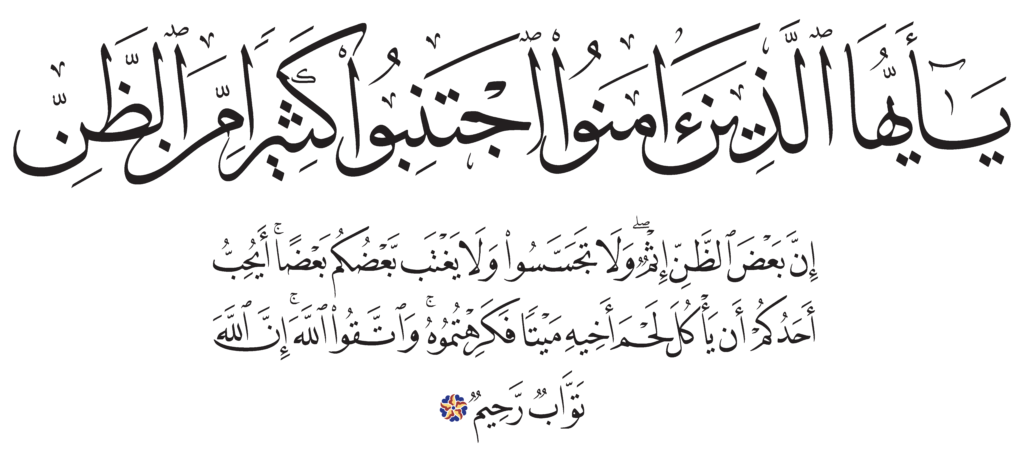 يَـٰٓأَيُّهَا ٱلَّذِينَ ءَامَنُوا۟ ٱجْتَنِبُوا۟ كَثِيرًا مِّنَ ٱلظَّنِّ
إِنَّ بَعْضَ ٱلظَّنِّ إِثْمٌ ۖ وَلَا تَجَسَّسُوا۟ وَلَا يَغْتَب بَّعْضُكُم بَعْضًا ۚ أَيُحِبُّ
أَحَدُكُمْ أَن يَأْكُلَ لَحْمَ أَخِيهِ مَيْتًا فَكَرِهْتُمُوهُ ۚ وَٱتَّقُوا۟ ٱللَّهَ ۚ إِنَّ ٱللَّهَ
تَوَّابٌ رَّحِيمٌ